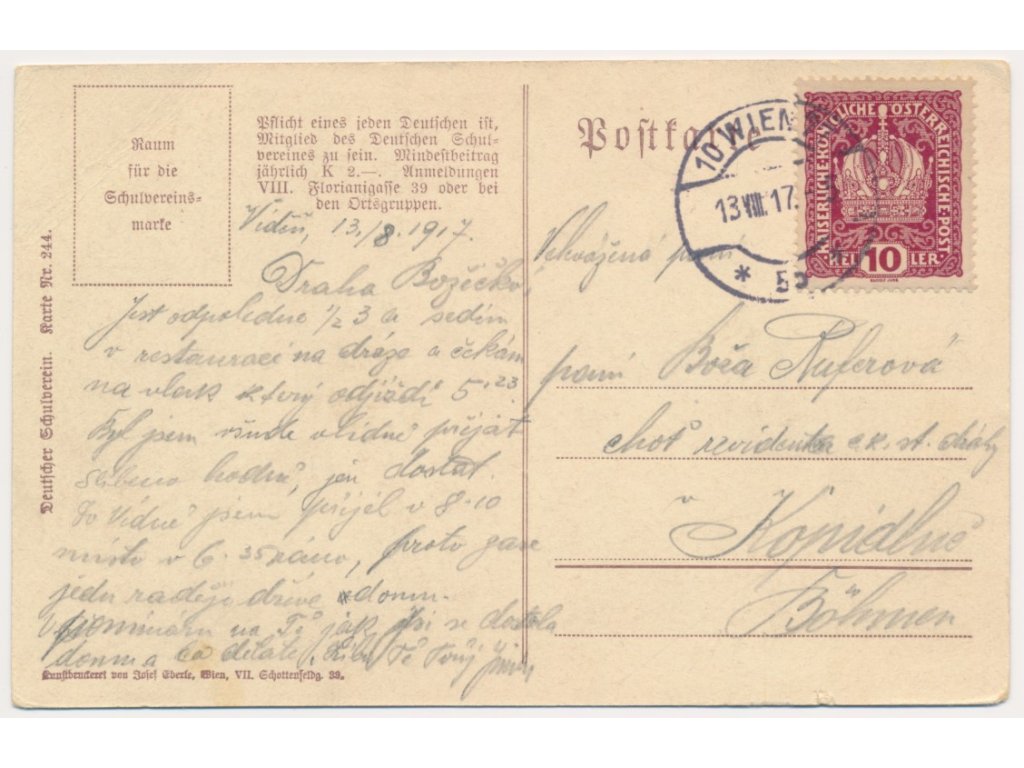 Raum
für die
Schulvereins-
marke
Pflicht eines jeden Deutschen ist,
Mitglied des Deutschen Schul-
vereines zu sein. Mindestbeitrag
jährlich K 2.—. Anmeldungen
VIII. Florianigasse 39 oder bei
den Ortsgruppen.
Deutscher Schulverein. Karte Nr. 244.
Vídeň, 13./8. 1917.
Draha Božečko,
Jest odpoledne 1/2 3 a sedím
v restauraci na dráze a čekám
na vlak který odjíždí 5.23
Byl jsem všude vlídně přijat
slíbeno hodně, jen dostat.
Do Vídně jsem přijel v 8.10
místo v 6.35 ráno, proto zase
jedu raději dříve domu.
Vzpomínám na Tě jak jsi se dostala
domu a co děláte. Líbá Tě Tvůj
Kunstdruckerei von Josef Eberle, Wien, VII. Schottenfeldg. 39.
Postkarte
10 WIEN
13.VIII.17.
* 5a
KAISERLICHE KÖNIGLICHE ÖSTERREICHISCHE POST
HELLER 10
Velevážená paní
paní Boža Ruferová
choť revidenta c.k. st. dráhy
v Kopidlně
Böhmen